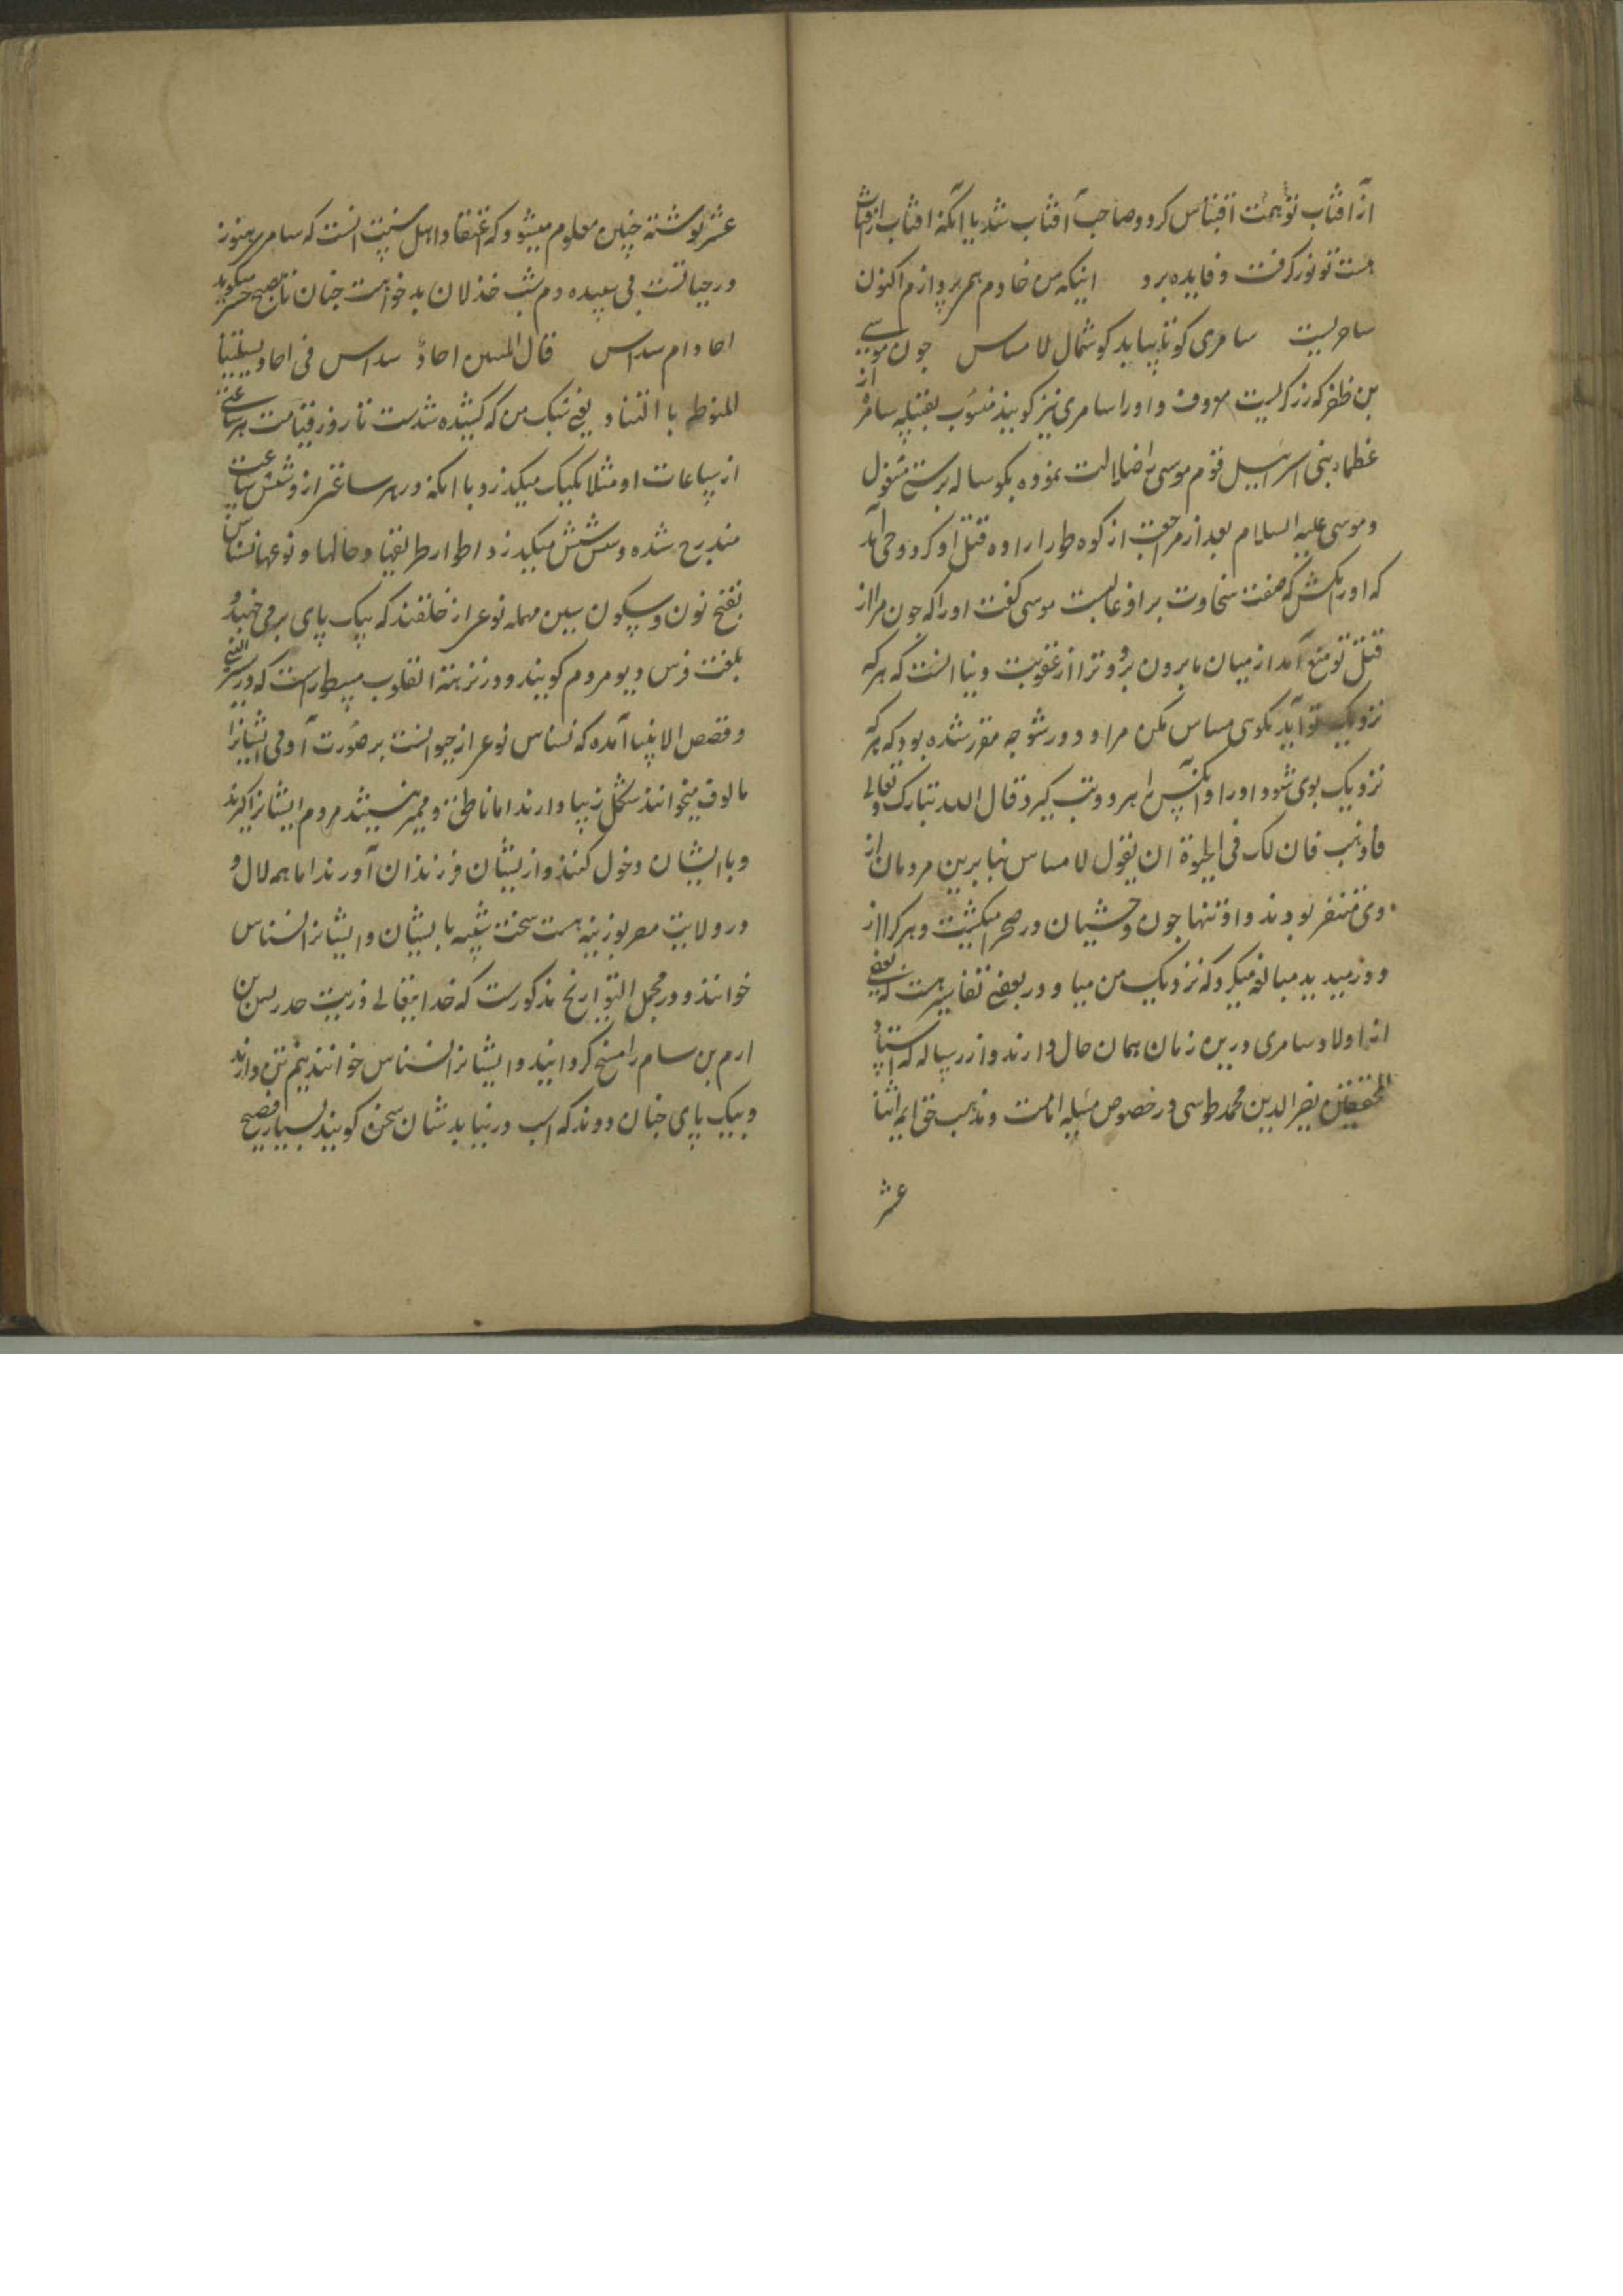 از آفتاب تو همت اقتباس کرد و صاحب آفتاب شد یا آنکه آفتاب از آفتاب
همت تو نور گرفت و فایده برد اینکه من خادم همی پردازم اکنون
ساحریست سامری کو تا بیابد گوشمال لا مساس چون موسی
بن ظفر که زرگریست معروف و او را سامری نیز گویند منسوب بقبیله سامره از
عظماء بنی اسرائیل قوم موسی را ضلالت نموده بگوساله پرستی مشغول
و موسی علیه السلام بعد از مراجعت از کوه طور اراده قتل او کرد وحی آمد
که او را مکش که صفت سخاوت بر او غالبست موسی گفت او را که چون مرا از
قتل تو منع آمد از میان ما برون رو و ترا از عقوبت دنیا آنست که هر که
نزدیک تو آید بگوی مساس مکن مرا و دور شو چه مقرر شده بود که هر که
نزدیک بوی شود او را و آنکس را هر دو تب گیرد قال الله تبارک و تعالی
فاذهب فان لک فی الحیوة ان تقول لا مساس بنابرین مردمان از
وی متنفر بودند و او تنها چون وحشیان در صحرا میگشت و هر کرا از
دور میدید مبالغه میکرد که نزدیک من میا و در بعضی تفاسیر هست که بعضی
از اولاد سامری درین زمان همان حال دارند و از رساله که استاد
المحققین نصیر الدین محمد طوسی در خصوص مسئله امامت و مذهب حق ایمه اثنا
عشر
عشر نوشته چنین معلوم میشود که اعتقاد اهل سنت آنست که سامری هنوز
در حیاتست فی سپیده دم شب خذلان بدخواهت چنان تا صبح حشر میکوید
احاد ام سداس قال المتنبی احاد ام سداس فی احاد لییلتنا
المنوطة بالتناد یعنی شبک من که کشیده شدست تا روز قیامت هر ساعتی
از ساعات او مثلا یکیک میگذرد با آنکه در هر ساعتی از و شش ساعت
مندرج شده و شش شش میگذرد اطوار طریقها و حالها و نوعها نسناس
بفتح نون و سکون سین مهمله نوعی از خلقند که بیک پای برمی جهند و
بلغت فرس دیو مردم گویند و در نزهة القلوب مسطورست که در سیر النبی
و قصص الانبیا آمده که نسناس نوعی از حیوانست بر صورت آدمی ایشانرا
مالوف میخوانند شکل زیبا دارند اما ناطق و ممیز نیستند مردم ایشانرا گیرند
و با ایشان دخول کنند و از ایشان فرزندان آورند اما همه لال و
در ولایت مصر بوزینه هست سخت شبیه با یشان و ایشانرا نسناس
خوانند و در مجمل التواریخ مذکورست که خدایتعالی ذریت جدیس بن
ارم بن سام را مسخ گردانید و ایشانرا نسناس خوانند نیم تن دارند
و بیک پای چنان دوند که اسب در نیابدشان سخن گویند بسیار فصیح